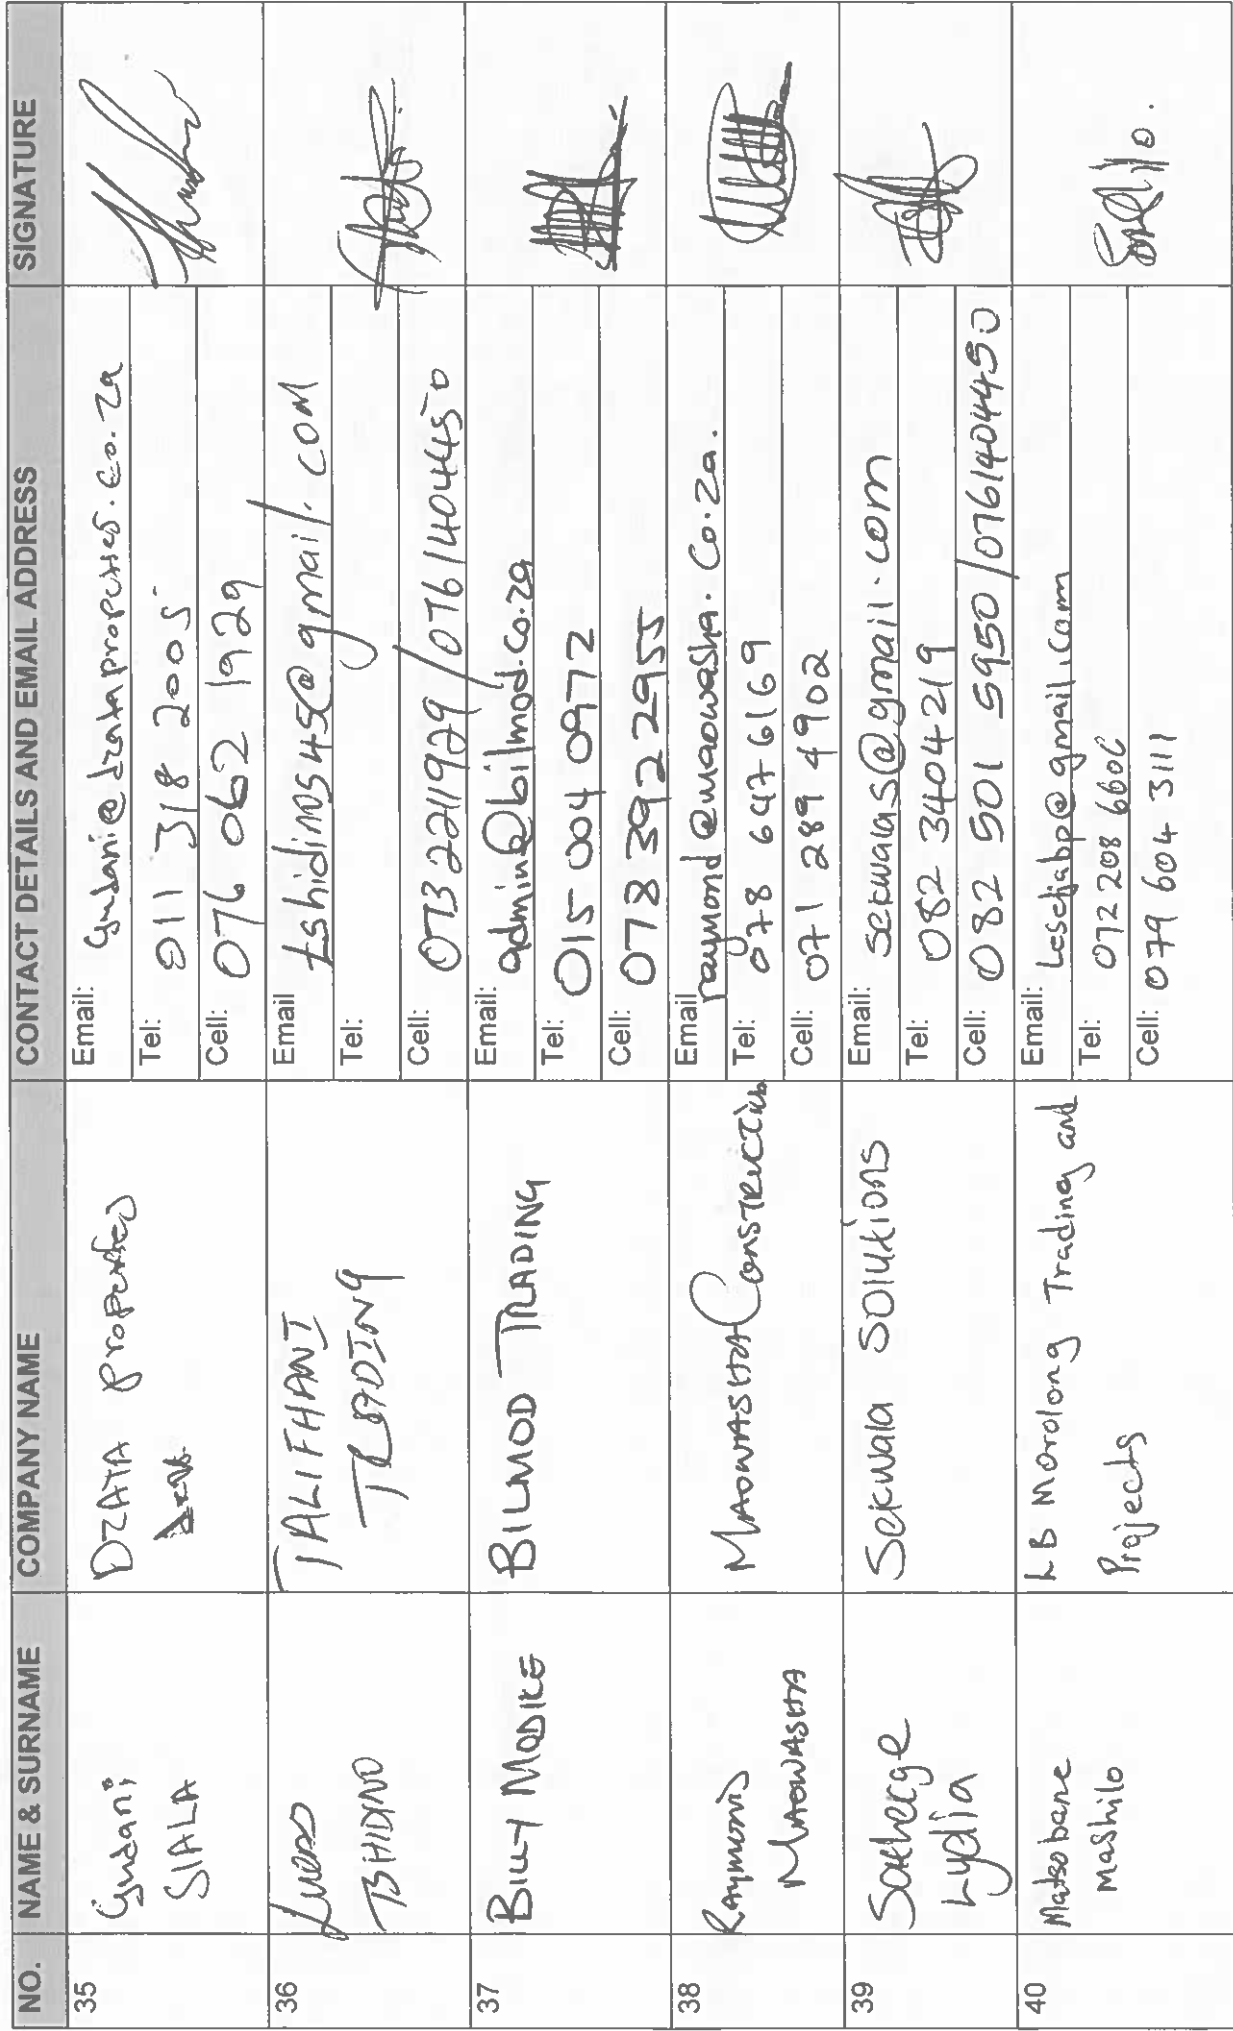 NO. NAME & SURNAME COMPANY NAME CONTACT DETAILS AND EMAIL ADDRESS SIGNATURE
35
Gudani
SIALA
DZATA Properties
Email: gudani@dzataproperties.co.za
Tel: 011 318 2005
Cell: 076 062 1929
36
Lucas
TSHIDINO
TALIFHANI
TRADING
Email tshidino45@gmail.com
Tel:
Cell: 073 2211929/0761404450
37
BILLY MODIKE
BILMOD TRADING
Email: admin@bilmod.co.za
Tel: 015 004 0972
Cell: 078 392 2955
38
RAYMOND
MAOWASHA
MAOWASHA CONSTRUCTION
Email raymond@maowasha.co.za.
Tel: 078 647 6169
Cell: 071 289 4902
39
Lydia
Sekwala SOLUTIONS
Email: sekwalas@gmail.com
Tel: 082 3404219
Cell: 082 501 5950/0761404450
40
Matsobane
Mashilo
LB Morolong Trading and
Projects
Email: Lesejabp@gmail.com
Tel: 072 208 6606
Cell: 079 604 3111